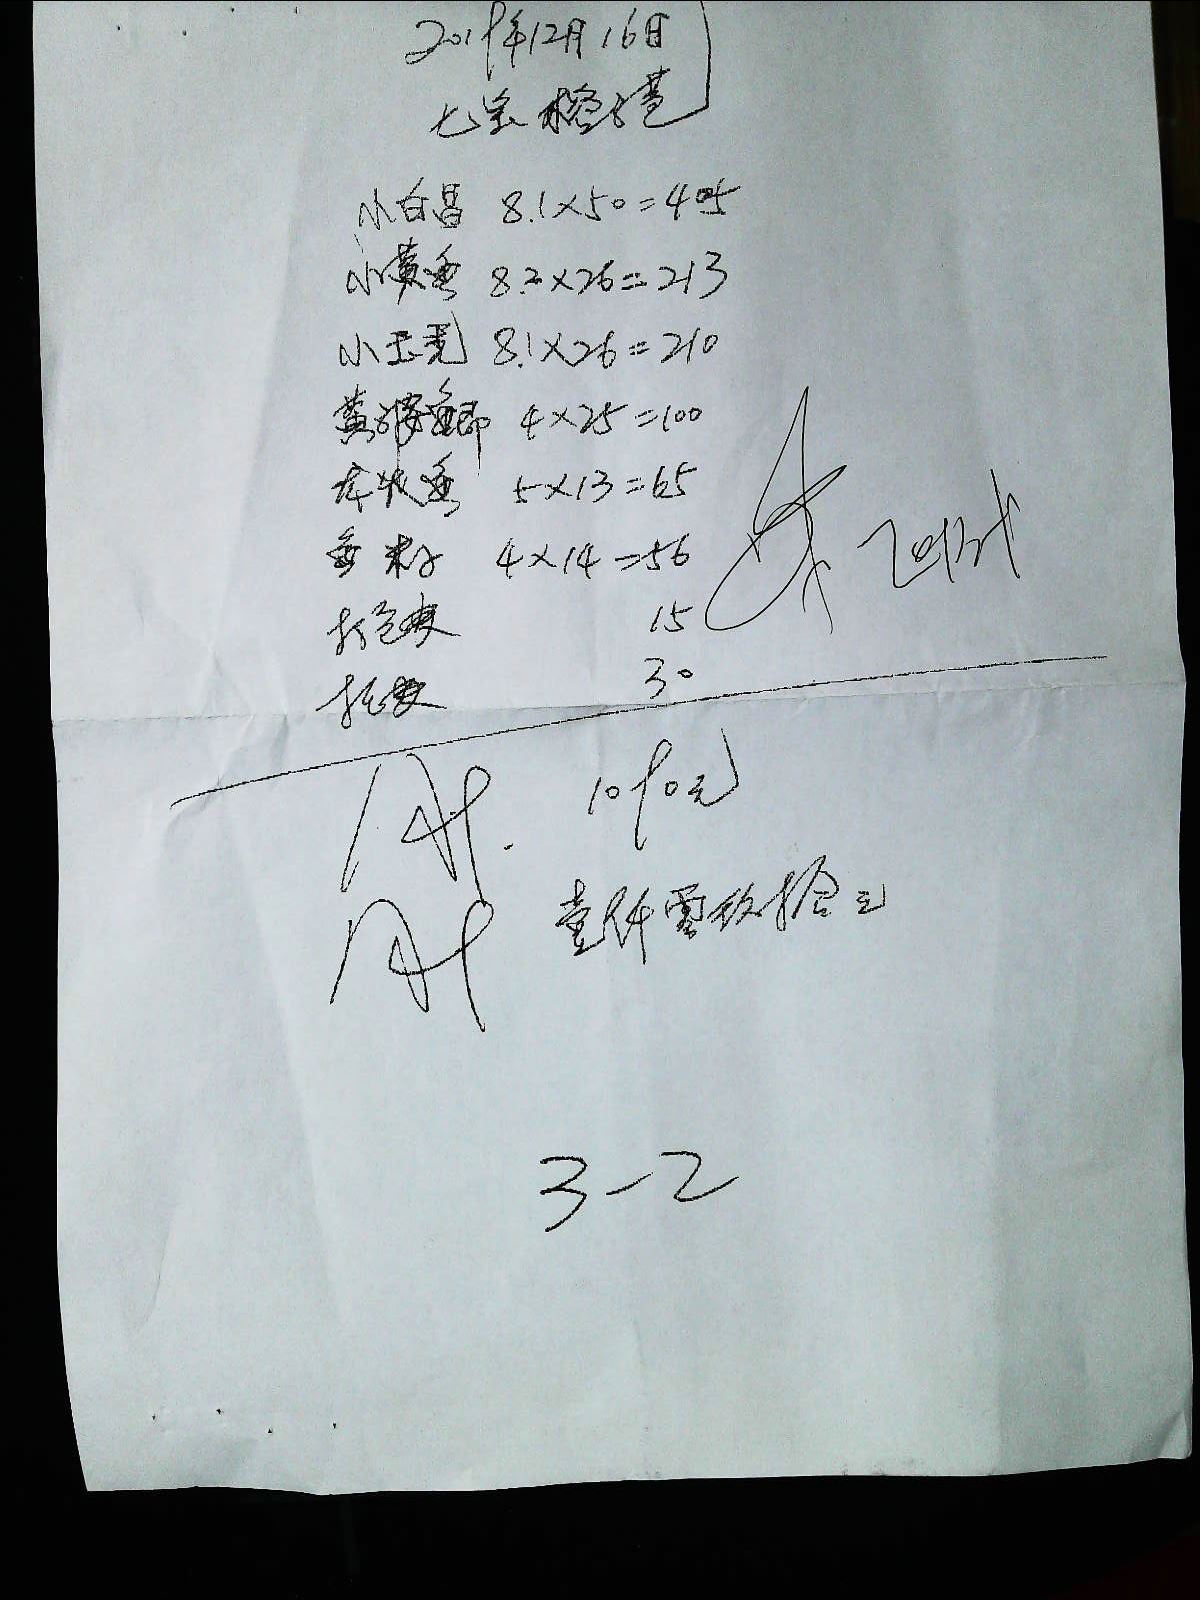 2019年12月16日
七宝
小白昌 8.1×50=405
小黄鱼 8.2×26=213
小玉秃 8.1×26=210
黄 4×25=100
鱼 5×13=65
鱼籽 4×14=56
打包费 15
30
1090元
壹仟零玖拾元
3-2